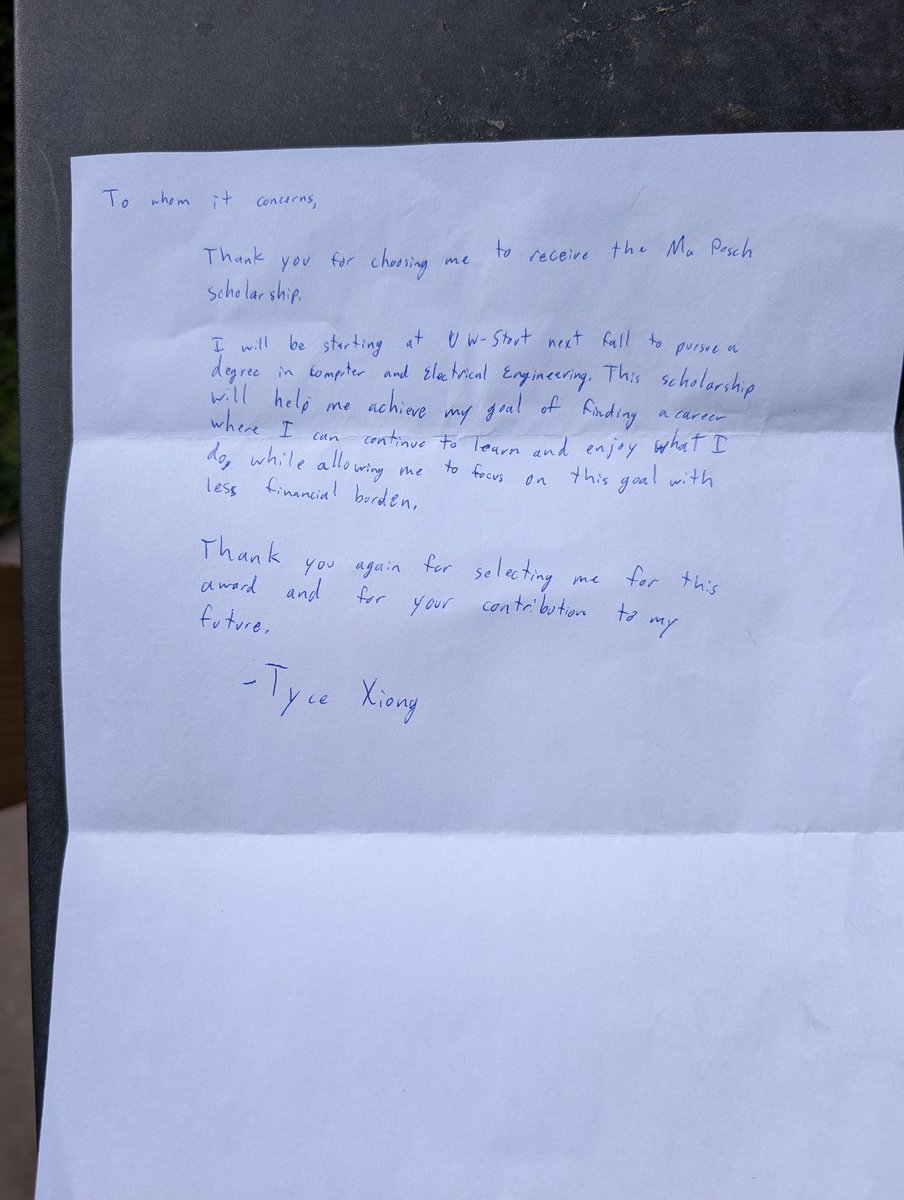 To whom it concerns,
Thank you for choosing me to receive the Ma Pesch
scholarship.
I will be starting at UW-Stout next fall to pursue a
degree in Computer and Electrical Engineering. This scholarship
will help me achieve my goal of finding a career
where I can continue to learn and enjoy what I
do, while allowing me to focus on this goal with
less financial borden.
Thank you again for selecting me for this
award and for your contribution to my
future.
-Tyce Xiong